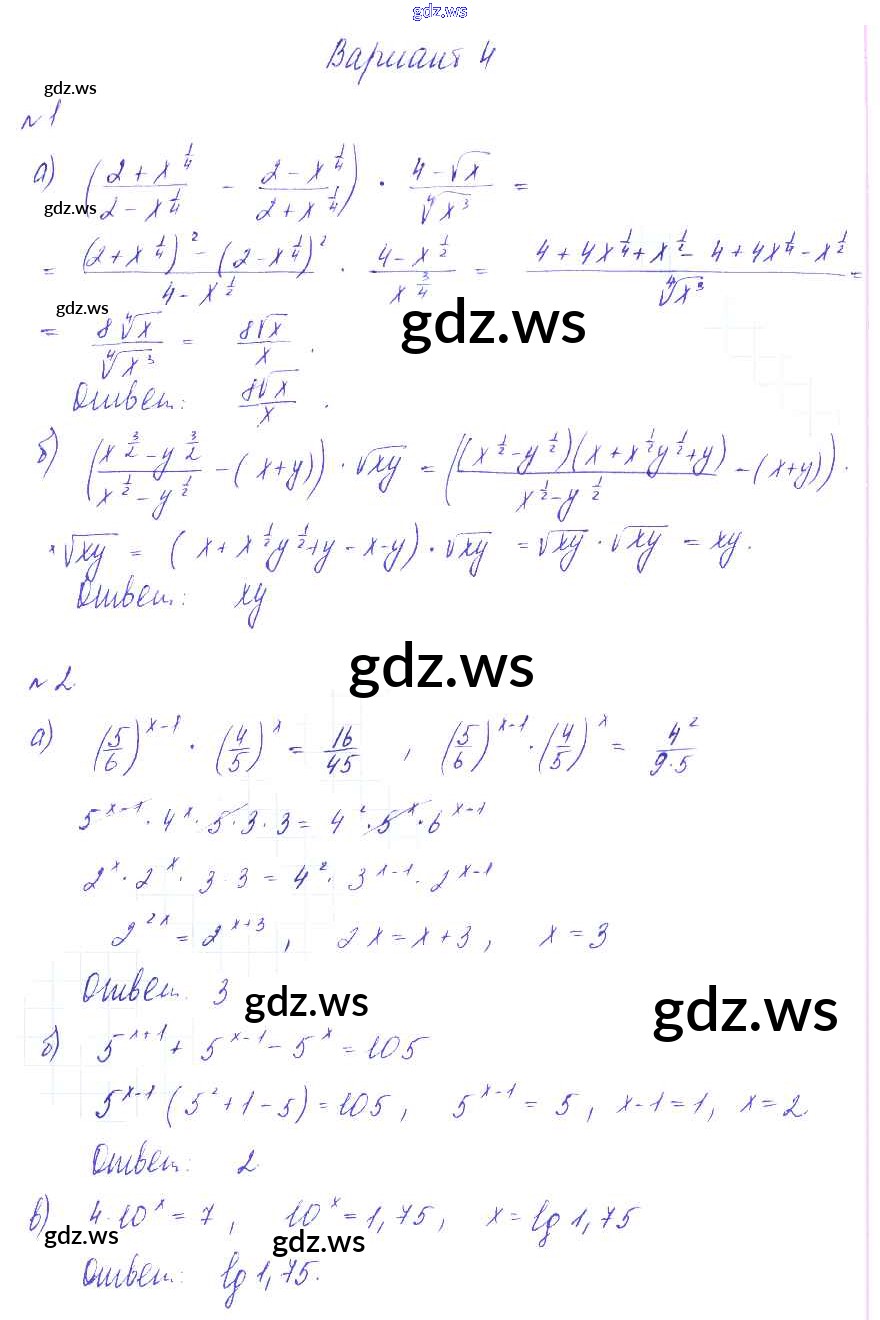 gdz.ws
Вариант 4
gdz.ws
№1
а) ((2 + x^(1/4))/(2 - x^(1/4)) - (2 - x^(1/4))/(2 + x^(1/4))) · (4 - √x)/(⁴√x³) =
gdz.ws
= ((2 + x^(1/4))² - (2 - x^(1/4))²)/(4 - x^(1/2)) · (4 - x^(1/2))/(x^(3/4)) = (4 + 4x^(1/4) + x^(1/2) - 4 + 4x^(1/4) - x^(1/2))/(⁴√x³) =
gdz.ws
gdz.ws
= (8⁴√x)/(⁴√x³) = (8√x)/x .
Ответ: (8√x)/x .
б) ((x^(3/2) - y^(3/2))/(x^(1/2) - y^(1/2)) - (x+y)) · √xy = (((x^(1/2) - y^(1/2))(x + x^(1/2)y^(1/2) + y))/(x^(1/2) - y^(1/2)) - (x+y)) ·
· √xy = (x + x^(1/2)y^(1/2) + y - x - y) · √xy = √xy · √xy = xy.
Ответ: xy
gdz.ws
№2.
а) (5/6)^(x-1) · (4/5)^x = 16/45 , (5/6)^(x-1) · (4/5)^x = 4²/(9·5)
5^(x-1) · 4^x · 5 · 3 · 3 = 4² · 5^x · 6^(x-1)
2^x · 2^x · 3 · 3 = 4² · 3^(x-1) · 2^(x-1)
2^(2x) = 2^(x+3) , 2x = x + 3 , x = 3
Ответ. 3
gdz.ws
gdz.ws
б) 5^(x+1) + 5^(x-1) - 5^x = 105
5^(x-1) (5² + 1 - 5) = 105 , 5^(x-1) = 5 , x-1 = 1, x = 2.
Ответ: 2.
в) 4·10^x = 7 , 10^x = 1,75 , x = lg 1,75
gdz.ws
gdz.ws
Ответ: lg 1,75.